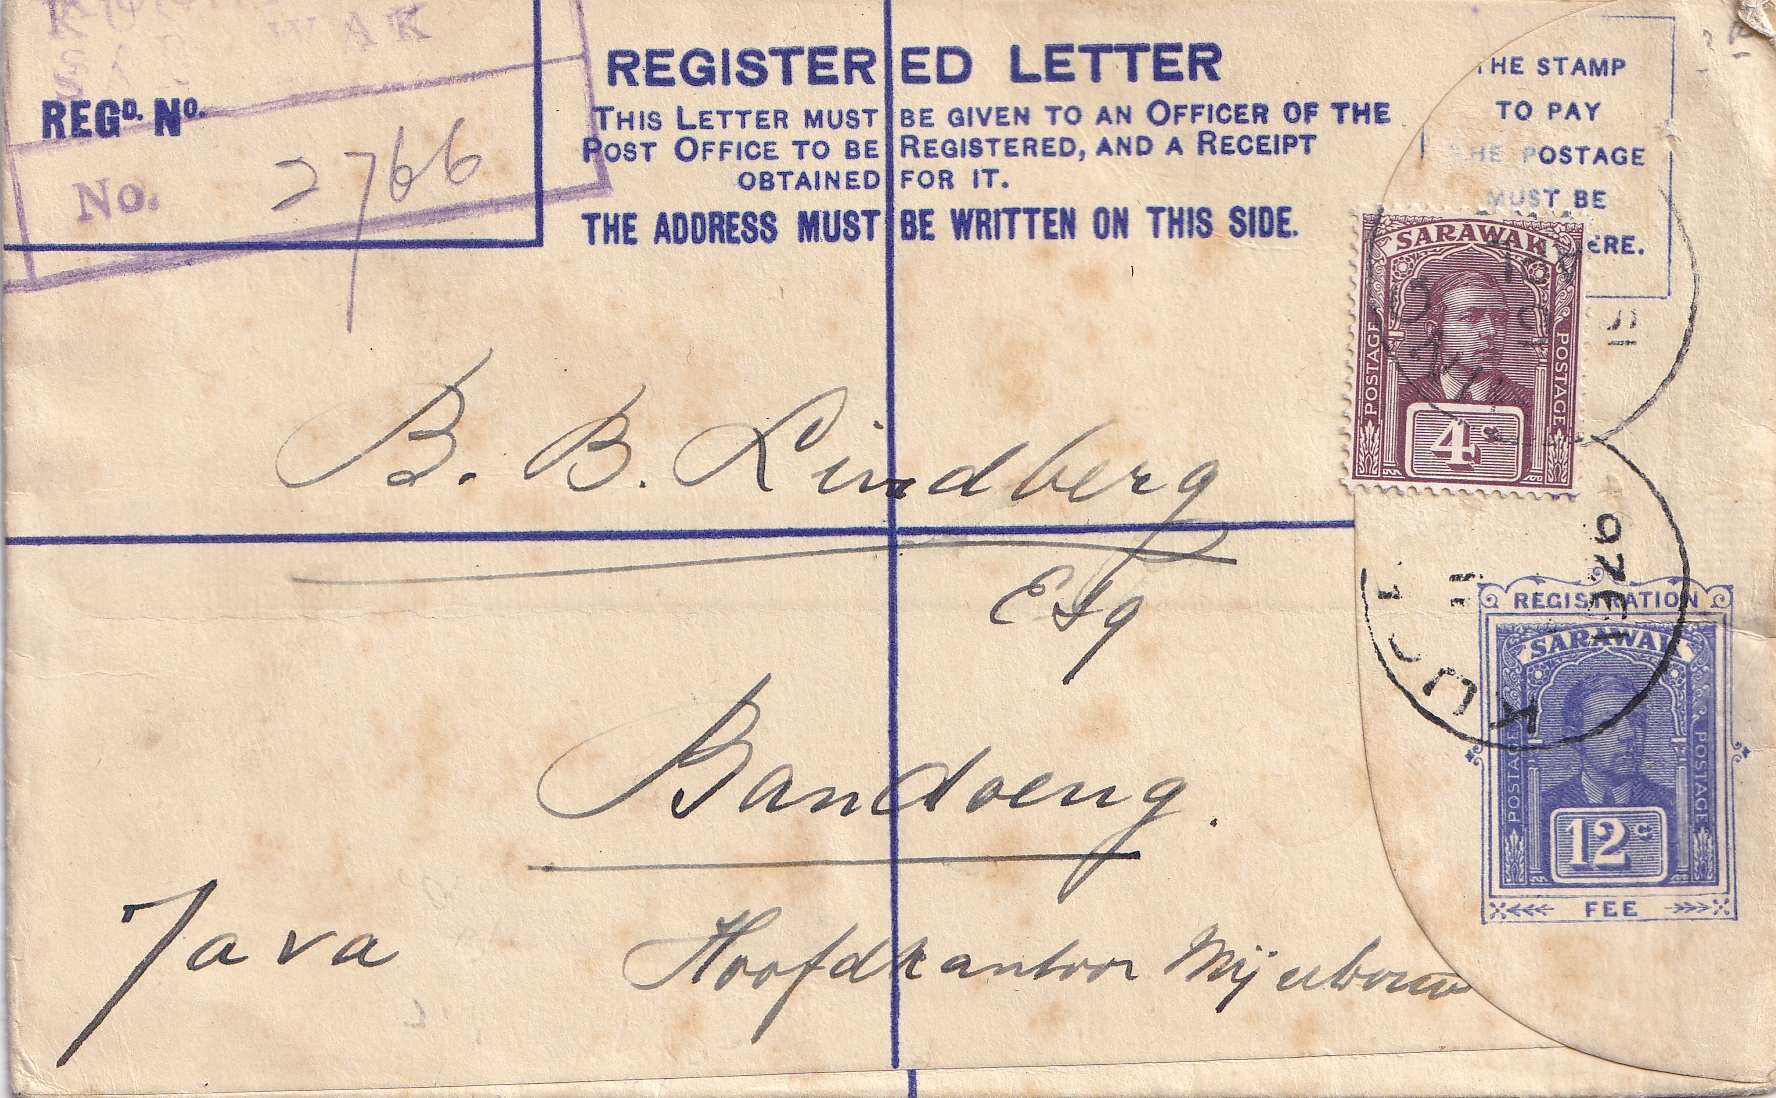 SARAWAK
REGD. No.
No. 2766
REGISTERED LETTER
THIS LETTER MUST BE GIVEN TO AN OFFICER OF THE
POST OFFICE TO BE REGISTERED, AND A RECEIPT
OBTAINED FOR IT.
THE ADDRESS MUST BE WRITTEN ON THIS SIDE.
THE STAMP
TO PAY
THE POSTAGE
MUST BE
SARAWAK
POSTAGE
POSTAGE
4c
B. B. Lindberg
Esq
Bandoeng.
Java
Hoofdkantoor Mijnbouw
REGISTRATION
SARAWAK
POSTAGE
POSTAGE
12c
FEE